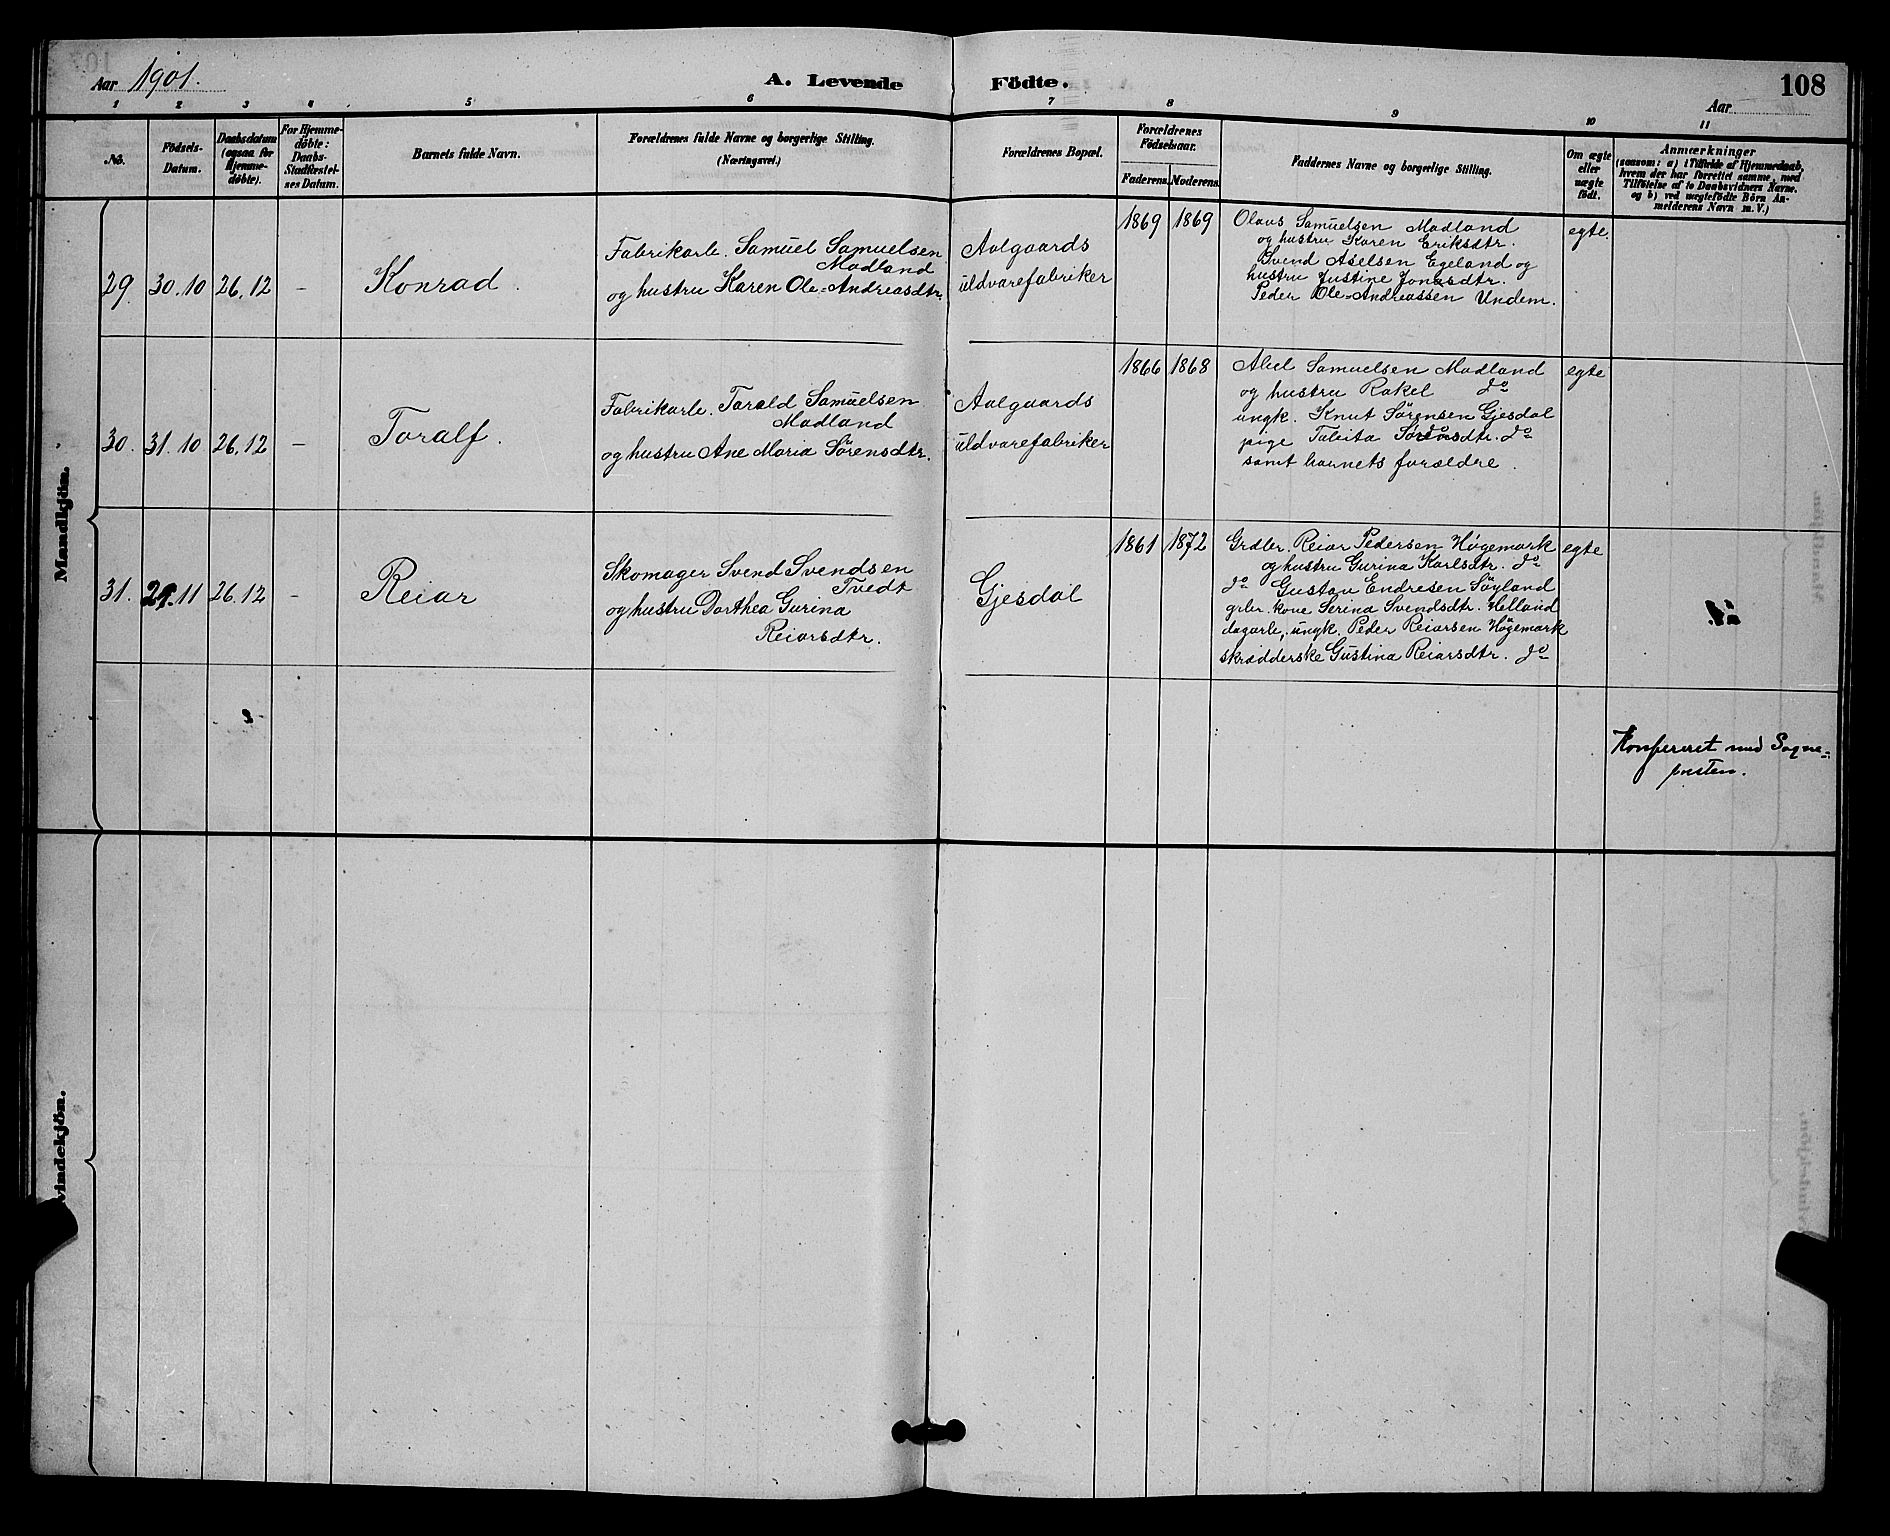 Aar 1901.
A. Levende Födte.
108
Aar
1 2 3 4 5 6 7 8 9 10 11
No.
Födsels-
Datum.
Daabsdatum
(ogsaa for
Hjemme-
döbte).
For Hjemme-
döbte:
Daabs-
Stadfæstel-
ses Datum.
Barnets fulde Navn.
Forældrenes fulde Navne og borgerlige Stilling.
(Næringsvei.)
Forældrenes Bopæl.
Forældrenes
Födselsaar.
Faderens. Moderens.
Faddernes Navne og borgerlige Stilling.
Om ægte
eller
uægte
födt.
Anmærkninger
(saasom: a) i Tilfælde af Hjemmedaab,
hvem der har forrettet samme, med
Tilföielse af to Daabsvidners Navne.
og b) ved uægtefödte Börn An-
melderens Navn m. V.)
Mandkjön.
29. 30.10 26.12 -
Konrad.
Fabrikarb. Samuel Samuelsen
Madland
og hustru Karen Ole-Andreasdtr.
Aalgaards
uldvarefabriker
1869 1869
Olaus Samuelsen Madland
og hustru Karen Eriksdtr.
Svend Aselsen Egeland og
hustru Justine Jonasdtr.
Peder Ole-Andreassen Undem.
egte.
30. 31.10 26.12 -
Toralf.
Fabrikarb. Torald Samuelsen
Madland
og hustru Ane Maria Sörensdtr.
Aalgaards
uldvarefabriker
1866 1868
Abel Samuelsen Madland
og hustru Rakel do
ungk. Knut Sörensen Gjesdal
pige Taleita Sörensdtr. do
samt barnets forældre.
egte
31. 29.11 26.12 -
Reiar
Skomager Svend Svendsen
Tvedt
og hustru Dorthea Gurina
Reiarsdtr.
Gjesdal
1861 1872
Grdbr. Reiar Pedersen Högemark
og hustru Gurina Karlsdtr. do
do Gustav Endresen Söyland
grbr. kone Serina Svendsdtr. Helland
dagarb., ungk. Peder Reiarsen Högemark
skrædderske Gustina Reiarsdtr. do
egte
Konfereret med Sogne-
presten.
vindekjön.